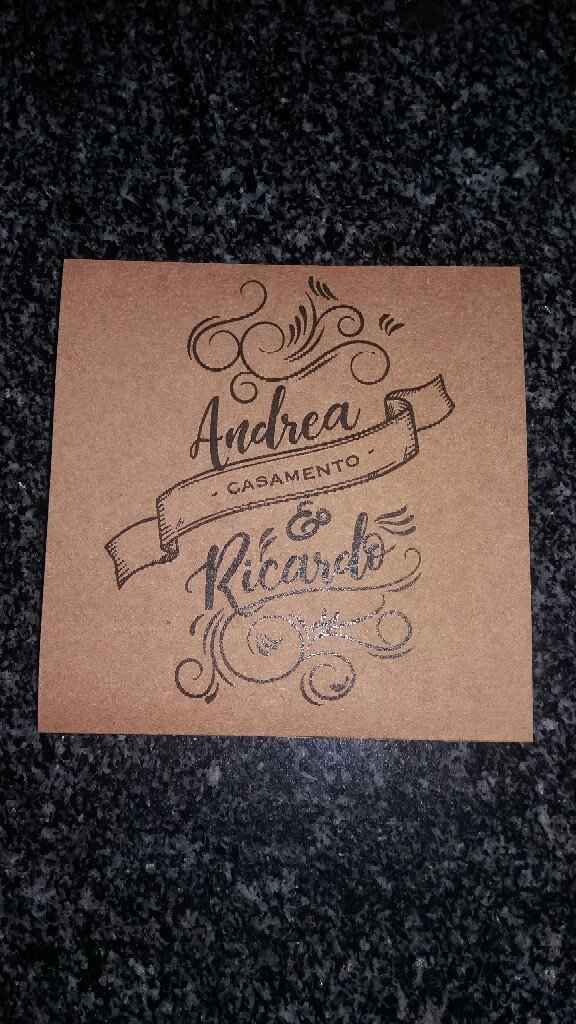 Andrea
- CASAMENTO -
&
Ricardo